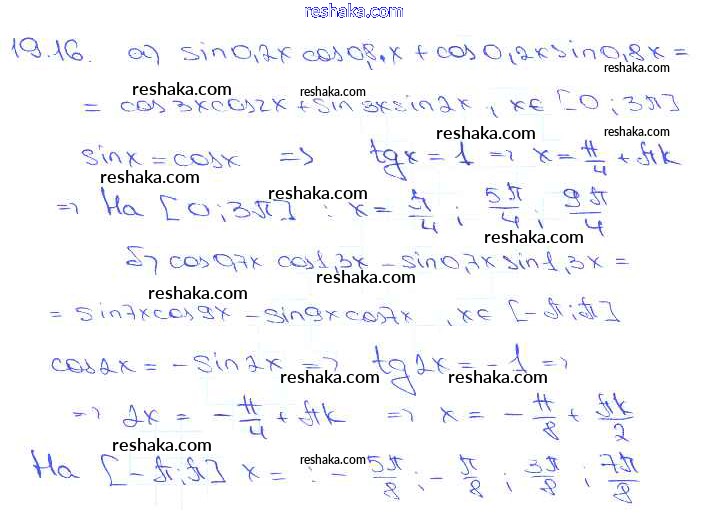 reshaka.com
19.16. а) sin0,2x cos0,8x + cos0,2x sin0,8x =
reshaka.com
reshaka.com
= cos3x cos2x + sin3x sin2x, x∈ [0; 3π]
reshaka.com
sinx = cosx => tgx = 1 => x = π/4 + πk
reshaka.com
reshaka.com
=> На [0; 3π] : x = π/4; 5π/4; 9π/4
reshaka.com
б) cos0,7x cos1,3x - sin0,7x sin1,3x =
reshaka.com
= sin7x cos9x - sin9x cos7x, x∈ [-π; π]
cos2x = - sin2x => tg2x = -1 =>
reshaka.com reshaka.com
=> 2x = - π/4 + πk => x = - π/8 + πk/2
reshaka.com
reshaka.com
На [-π; π] x = : - 5π/8; - π/8; 3π/8; 7π/8